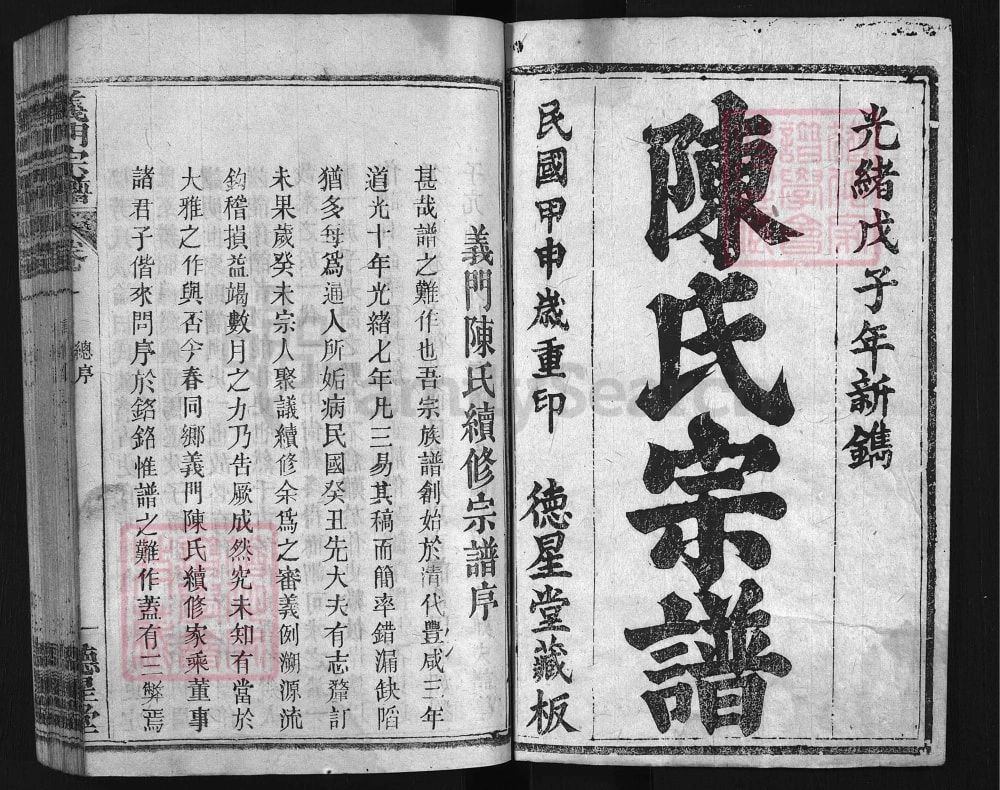 光緒戊子年新鐫
陳氏宗譜
民國甲申歲重印　德星堂藏板
義門陳氏續修宗譜序
甚哉譜之難作也吾宗族譜創始於清代豐咸三年
道光十年光緒七年凡三易其稿而簡率錯漏缺陷
猶多每爲通人所姤病民國癸丑先大夫有志釐訂
未果歲癸未宗人聚議續修余爲之審義例溯源流
鈎稽損益竭數月之力乃告厥成然究未知有當於
大雅之作與否今春同鄉義門陳氏續修家乘董事
諸君子偕來問序於銘銘惟譜之難作蓋有三弊焉
義門宗譜
總序
一
德星堂
FamilySearch